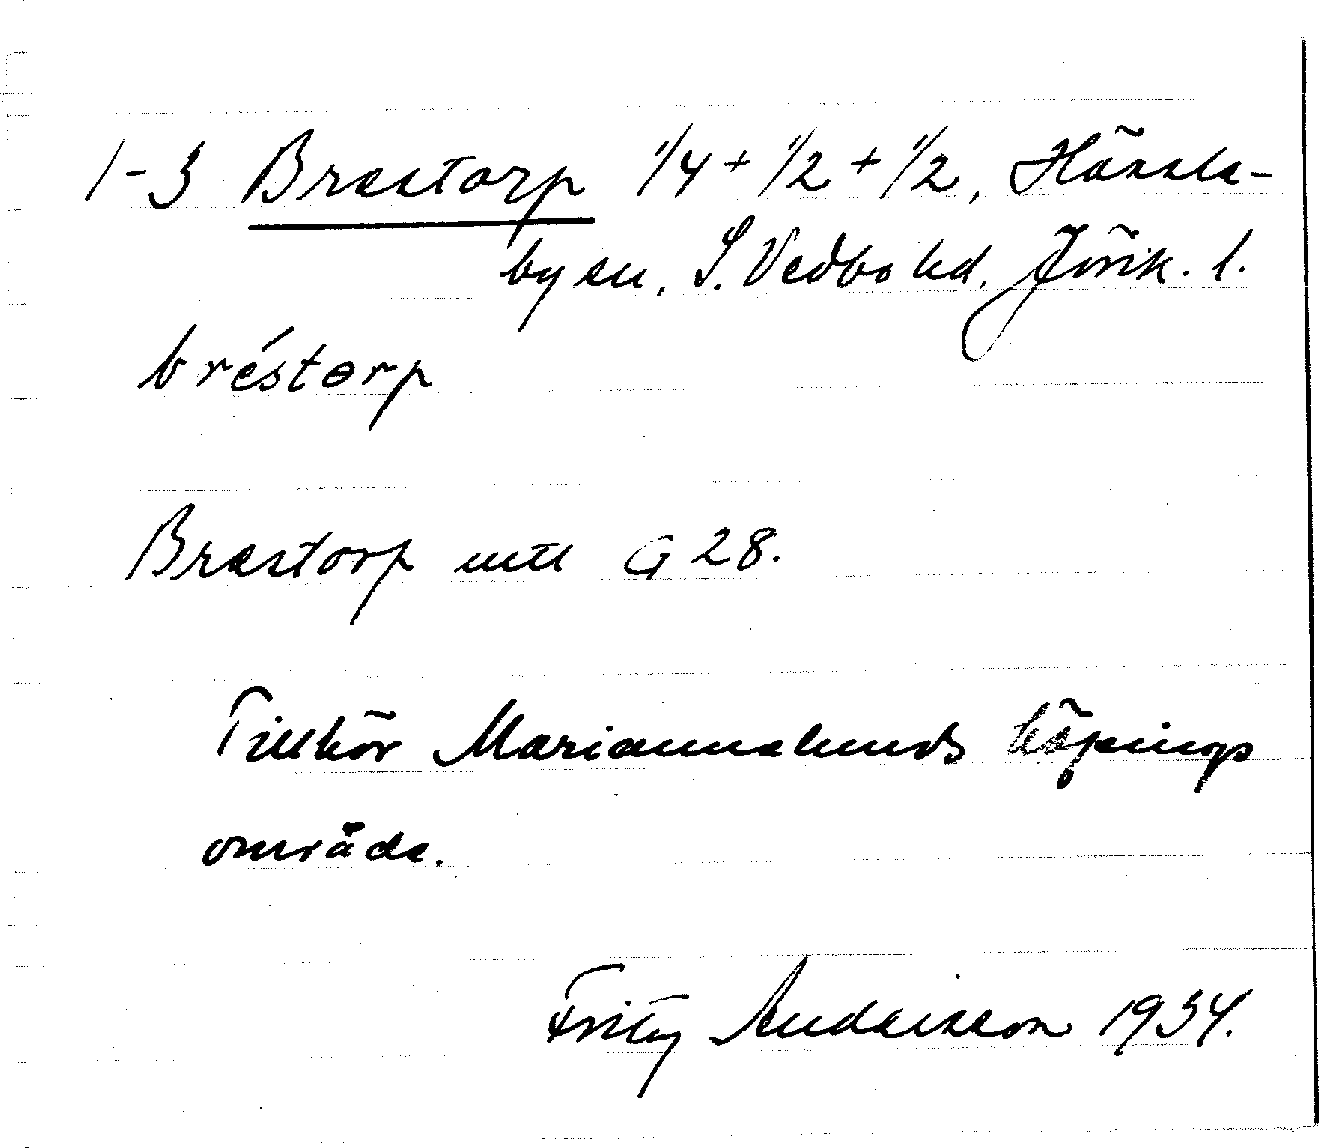 1-3 Brestorp 1/4 + 1/2 + 1/2, Hässle-
by sn, S. Vedbo hd. Jönk. l.
bréstorp
Brestorp mtl G 28.
Tillhör Mariannelunds köpings
område.
Fritz Andersson 1934.